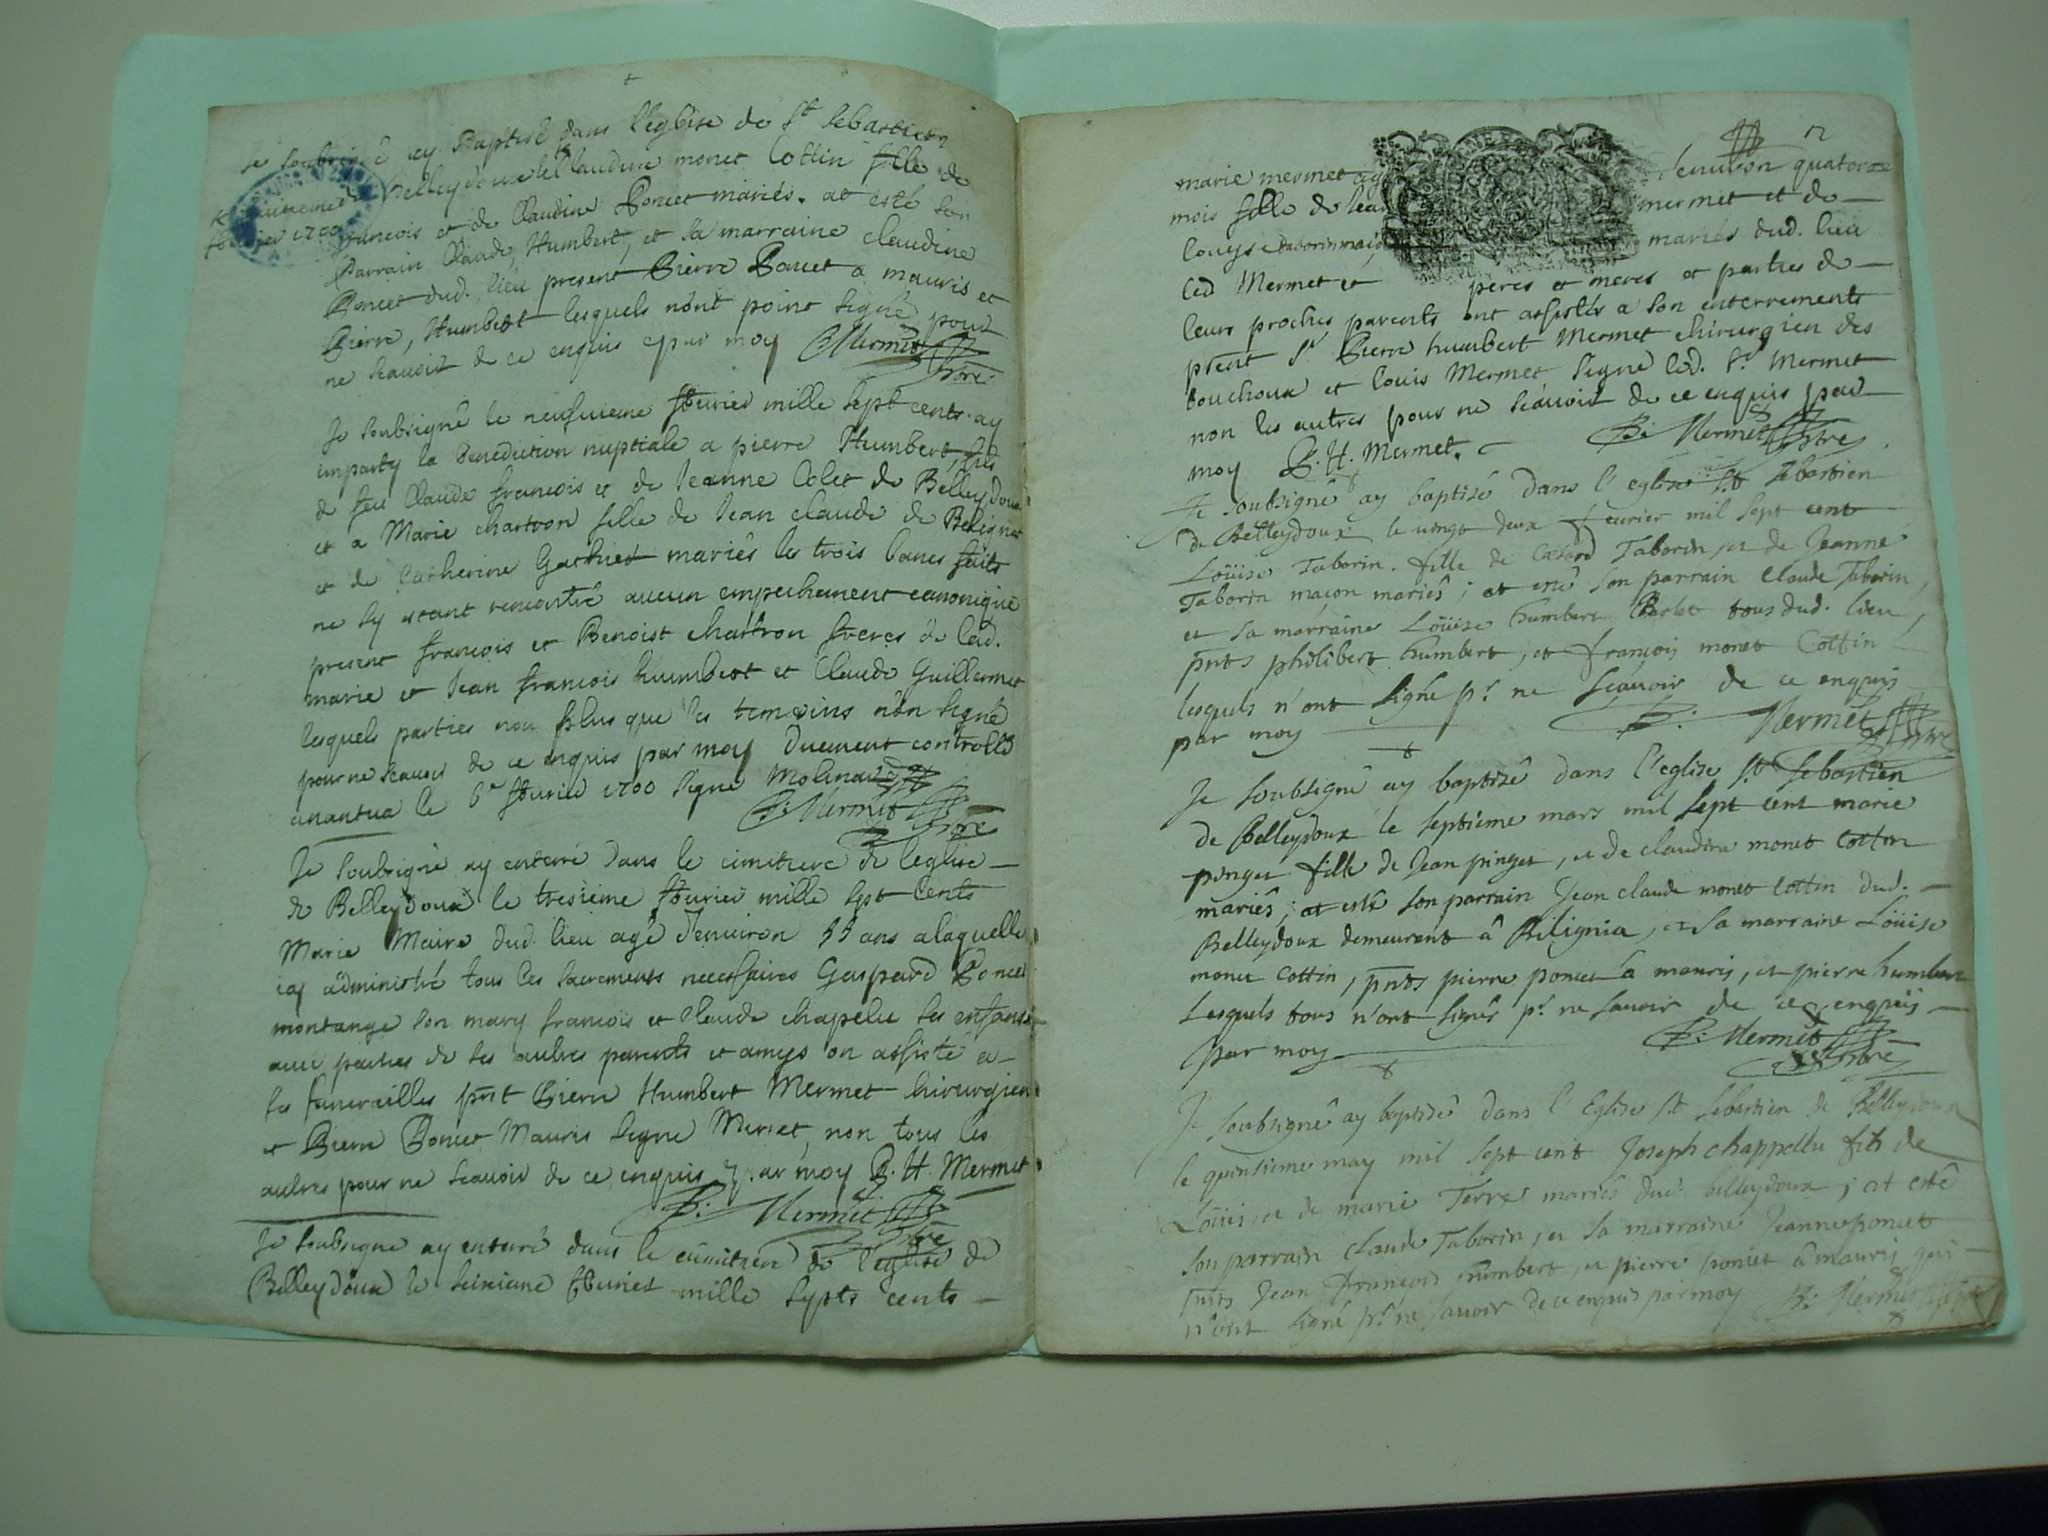 Je soubsigné ay Baptisé dans l'église de St Sebastien
Belleydoux Claudine monet Cottin fille de
françois et de Claudine Poncet mariés. at esté son
feburier 1700
parrain Claude Humbert, et sa marraine claudine
Poncet dud. lieu present Pierre Poncet a mauris et
Pierre, Humbert lesquels n'ont point signé pour
ne scauoir de ce enquis par moy P Mermet ptre
Je soubsigné le neufuieme feburier mille sept cents ay
imparty la Benediction nuptiale a pierre Humbert, fils
de feu Claude françois et de Jeanne Colet de Belleydoux
et a Marie chartron fille de Jean claude de
et de Catherine mariés les trois bancs faits
ne sy estant rencontré aucun empechement canonique
present françois et Benoist chartron freres de lad.
marie et Jean françois humbert et Claude Guillermet
lesquels parties non plus que les temoins n'on signé
pour ne scauoir de ce enquis par moy duement controllé
anantua le 6e feburier 1700 signé Molinard
P. Mermet ptre
Je soubsigné ay enterré dans le cimitiere de leglise
de Belleydoux le tresieme feburier mille sept Cents
Marie Maire dud. lieu agé d'enuiron 55 ans a laquelle
iay administré tous les sacrements necessaires Gaspard Poncet
montange son mary françois et Claude chapelu ses enfans
auec parties de ses autres parents et amys on assisté a
ses funerailles pnt Pierre Humbert Mermet chirurgien
et Pierre Poncet Mauris signé Mermet non tous les
autres pour ne scauoir de ce enquis par moy P. H. Mermet
P. Mermet ptre
Je soubsigné ay enterré dans le cimitiere de l'église de
Belleydoux le seixieme feburier mille septs cents
2
marie mermet d'enuiron quatorze
mois fille de Jean mermet et de
Louyse taborin mariés dud. lieu
Led Mermet et peres et meres et parties de
leurs proches parents ont assistés a son enterrements
pnt Sr Pierre humbert Mermet chirurgien des
bouchoux et Louis Mermet signé led. Sr Mermet
non les autres pour ne scauoir de ce enquis par
moy P. H. Mermet. P: Mermet ptre
Je soubsigné ay baptisé dans l'eglise St Sebastien
de Belleydoux le vingt deux feurier mil sept cent
Loüise Taborin. fille de Taborin, et de Jeanne
Taborin maçon mariés; at esté son parrain Claude Taborin,
et sa marraine Loüise humbert tous dud. lieu,
pnts philibert humbert, et françois monet Cottin
lesquels n'ont signé pr. ne sçauoir de ce enquis
par moy P: Mermet ptre
Je soubsigné ay baptisé dans l'eglise St Sebastien
de Belleydoux le septieme mars mil sept cent marie
pinget fille de Jean pinget, et de claudine monet cottin
mariés; at esté son parrain Jean claude monet cottin dud.
Belleydoux demeurent â Bilignia, et sa marraine Loüise
monet cottin, pnts pierre poncet â mauris, et pierre humbert
Lesquels tous n'ont signés pr. ne sauoir de ce enquis
par moy P: Mermet ptre
Je soubsigné ay baptisé dans l'Eglise St Sebastien de Belleydoux
le quinsieme may mil sept cent Joseph chappellu fils de
Loüis, et de marie Terre mariés dud. belleydoux; at esté
son parrain claude Taborin, et sa marraine Jeanne poncet
pnts Jean françois humbert, et pierre poncet â mauris qui
n'ont signé pr. ne sauoir de ce enquis par moy P: Mermet ptre